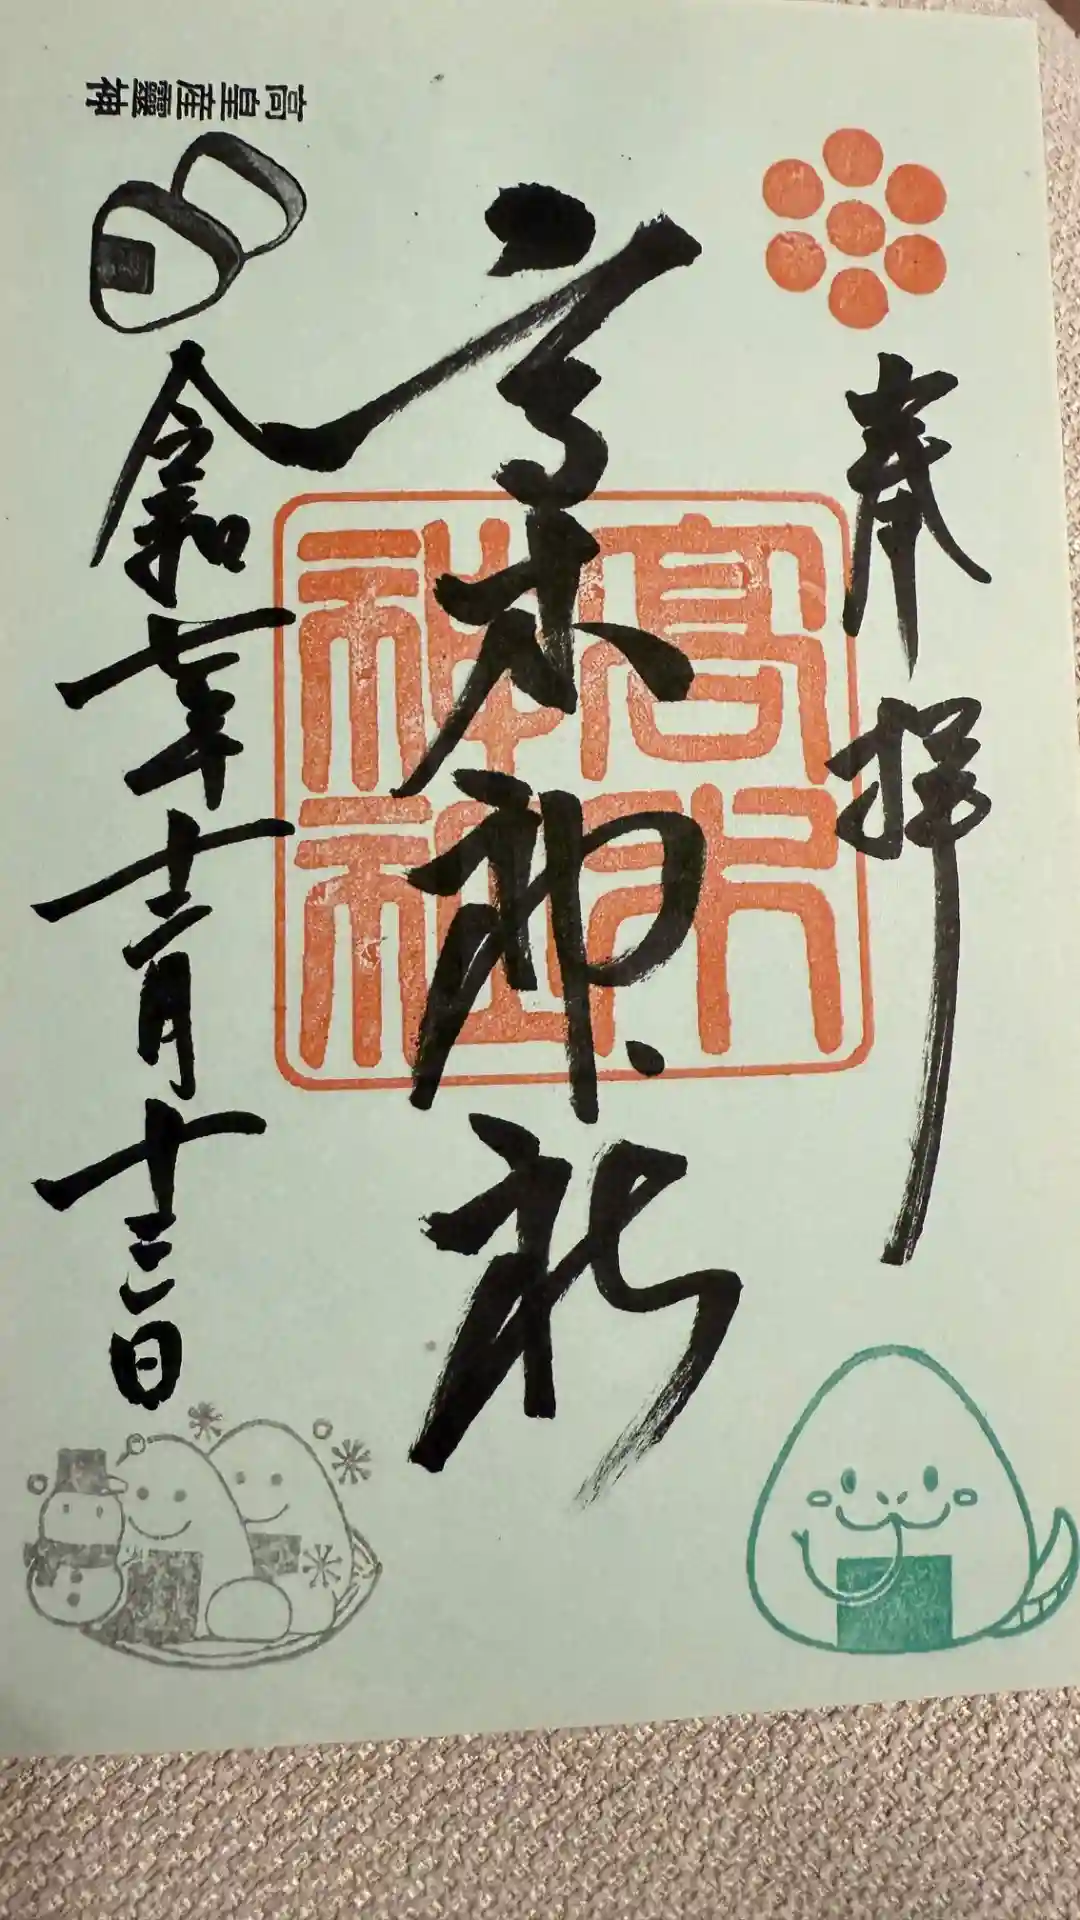 奉拝
高木神社
高木
神社
高皇産靈神
令和七年十二月十三日